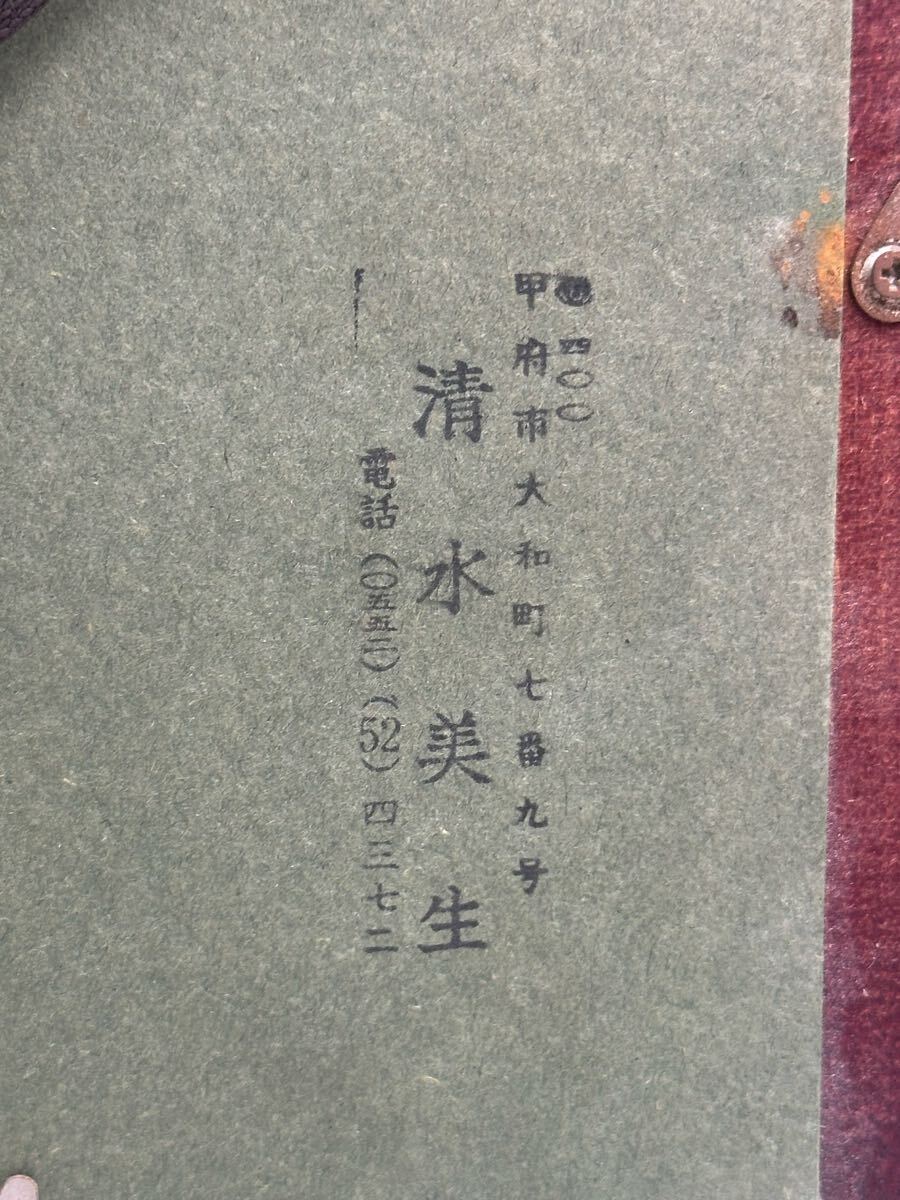 ㊞ 四〇〇
甲府市大和町七番九号
清水美生
電話(〇五五二)(52)四三七二